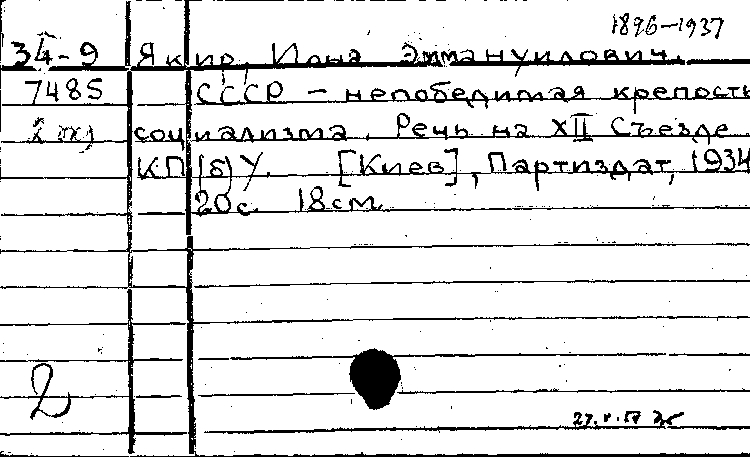 1896-1937
34-9 Якир, Иона Эммануилович.
7485 СССР - непобедимая крепость
2 социализма. Речь на XII Съезде
КП(б)У. [Киев], Партиздат, 1934
20с. 18см.
2
27.V.57